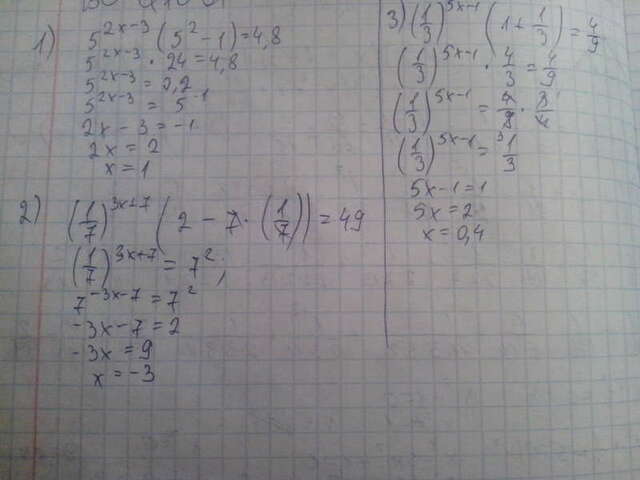 1)
5^{2x-3} (5^2 - 1) = 4,8
5^{2x-3} · 24 = 4,8
5^{2x-3} = 0,2
5^{2x-3} = 5^{-1}
2x - 3 = -1
2x = 2
x = 1
2)
(1/7)^{3x+7} (2 - 7 · (1/7)) = 49
(1/7)^{3x+7} = 7^2;
7^{-3x-7} = 7^2
-3x - 7 = 2
-3x = 9
x = -3
3) (1/3)^{5x-1} (1 + 1/3) = 4/9
(1/3)^{5x-1} · 4/3 = 4/9
(1/3)^{5x-1} = 4/9 · 3/4
(1/3)^{5x-1} = 1/3
5x - 1 = 1
5x = 2
x = 0,4